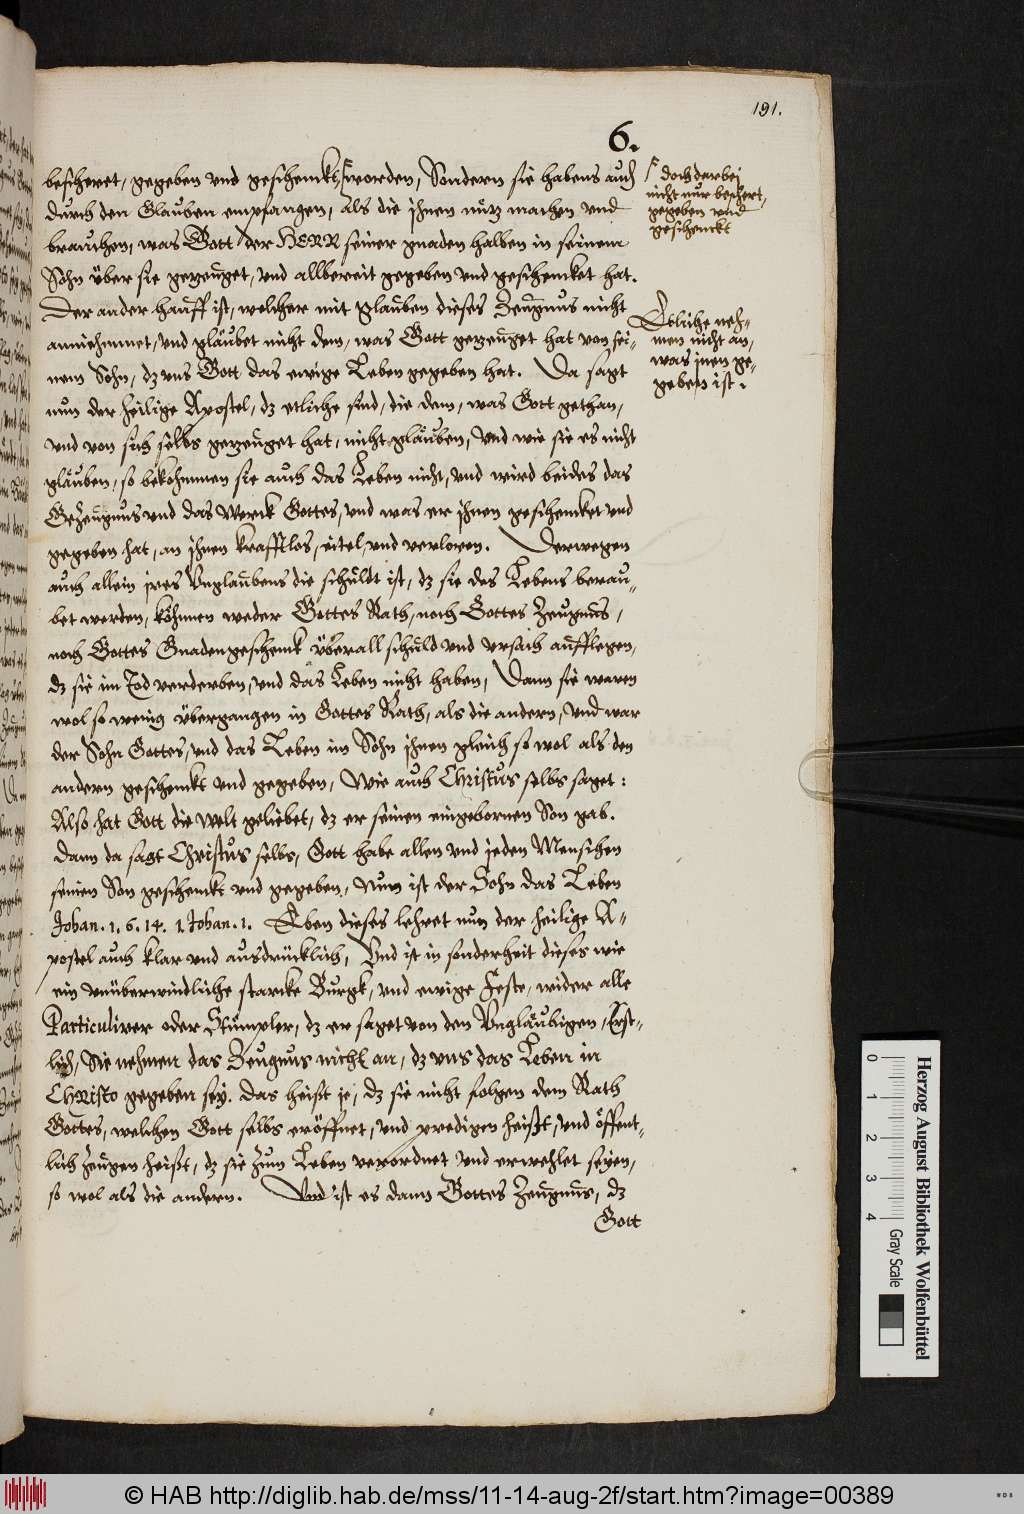 191.
6.
bescheret, gegeben vnd geschenckt, worden, Sondern sie habens auch
durch den Glauben empfangen, als die ihnen nütz machen vnd
brauchen, was Gott der HERR seiner gnaden halben in seinem
Sohn über sie gezeuget, vnd allbereit gegeben vnd geschencket hat.
Der ander hauff ist, welcher mit glauben dieses Zeugnus nicht
anniehmmet, vnd gläubet nicht dem, was Gott gezeuget hat von sei-
nem Sohn, dz vns Gott das ewige Leben gegeben hat. Da sagt
nun der heilige Apostel, dz etliche sind, die dem, was Gott gethan,
vnd von sich selbs gezeuget hat, nicht gläuben, Vnd wie sie es nicht
gläuben, so bekohmmen sie auch das Leben nicht, vnd wird beides das
Gezeugnus vnd das Werck Gottes, vnd was er ihnen geschencket vnd
gegeben hat, an ihnen krafftlos, eitel, vnd verloren. Derwegen
auch allein ires Vnglaubens die schuldt ist, dz sie des Lebens berau-
bet werden, köhnnen weder Gottes Rath, noch Gottes Zeugnus,
noch Gottes Gnadengeschenck überall schuld vnd vrsach aufflegen,
dz sie im Tod verderben, vnd das Leben nicht haben, Dann sie waren
wol so wenig übergangen in Gottes Rath, als die andern, Vnd war
der Sohn Gottes, vnd das Leben im Sohn ihnen gleich so wol als den
andern geschenckt vnd gegeben, Wie auch Christus selbs saget:
Also hat Gott die Welt geliebet, dz er seinen eingebornen Son gab.
Dann da sagt Christus selbs, Gott habe allen vnd jeden Menschen
seinen Son geschenckt vnd gegeben, Nun ist der Sohn das Leben
Johan. 1. 6. 14. 1. Johan. 1. Eben dieses lehret nun der heilige A-
postel auch klar vnd ausdrücklich, Vnd ist in sonderheit dieses wie
ein vnüberwindliche starcke Burgk, vnd ewige Feste, wider alle
Particulirer oder Stümpler, dz er saget von den Vngläubigen, Erst-
lich, Sie nehmen das Zeugnus nicht an, dz vns das Leben in
Christo gegeben sey. Das heist je, dz sie nicht folgen dem Rath
Gottes, welchen Gott selbs eröffnet, vnd predigen heißt, vnd öffent-
lich Zeugen heißt, dz sie zum Leben verordnet vnd erwehlet seyen,
so wol als die andern. Vnd ist es dann Gottes Zeugnus, dz
Gott
doch darbei
nicht nur beschert,
gegeben vnd
geschenckt
Etliche neh-
men nicht an,
was jnen ge-
geben ist.
0 1 2 3 4
Gray Scale
Herzog August Bibliothek Wolfenbüttel
© HAB http://diglib.hab.de/mss/11-14-aug-2f/start.htm?image=00389